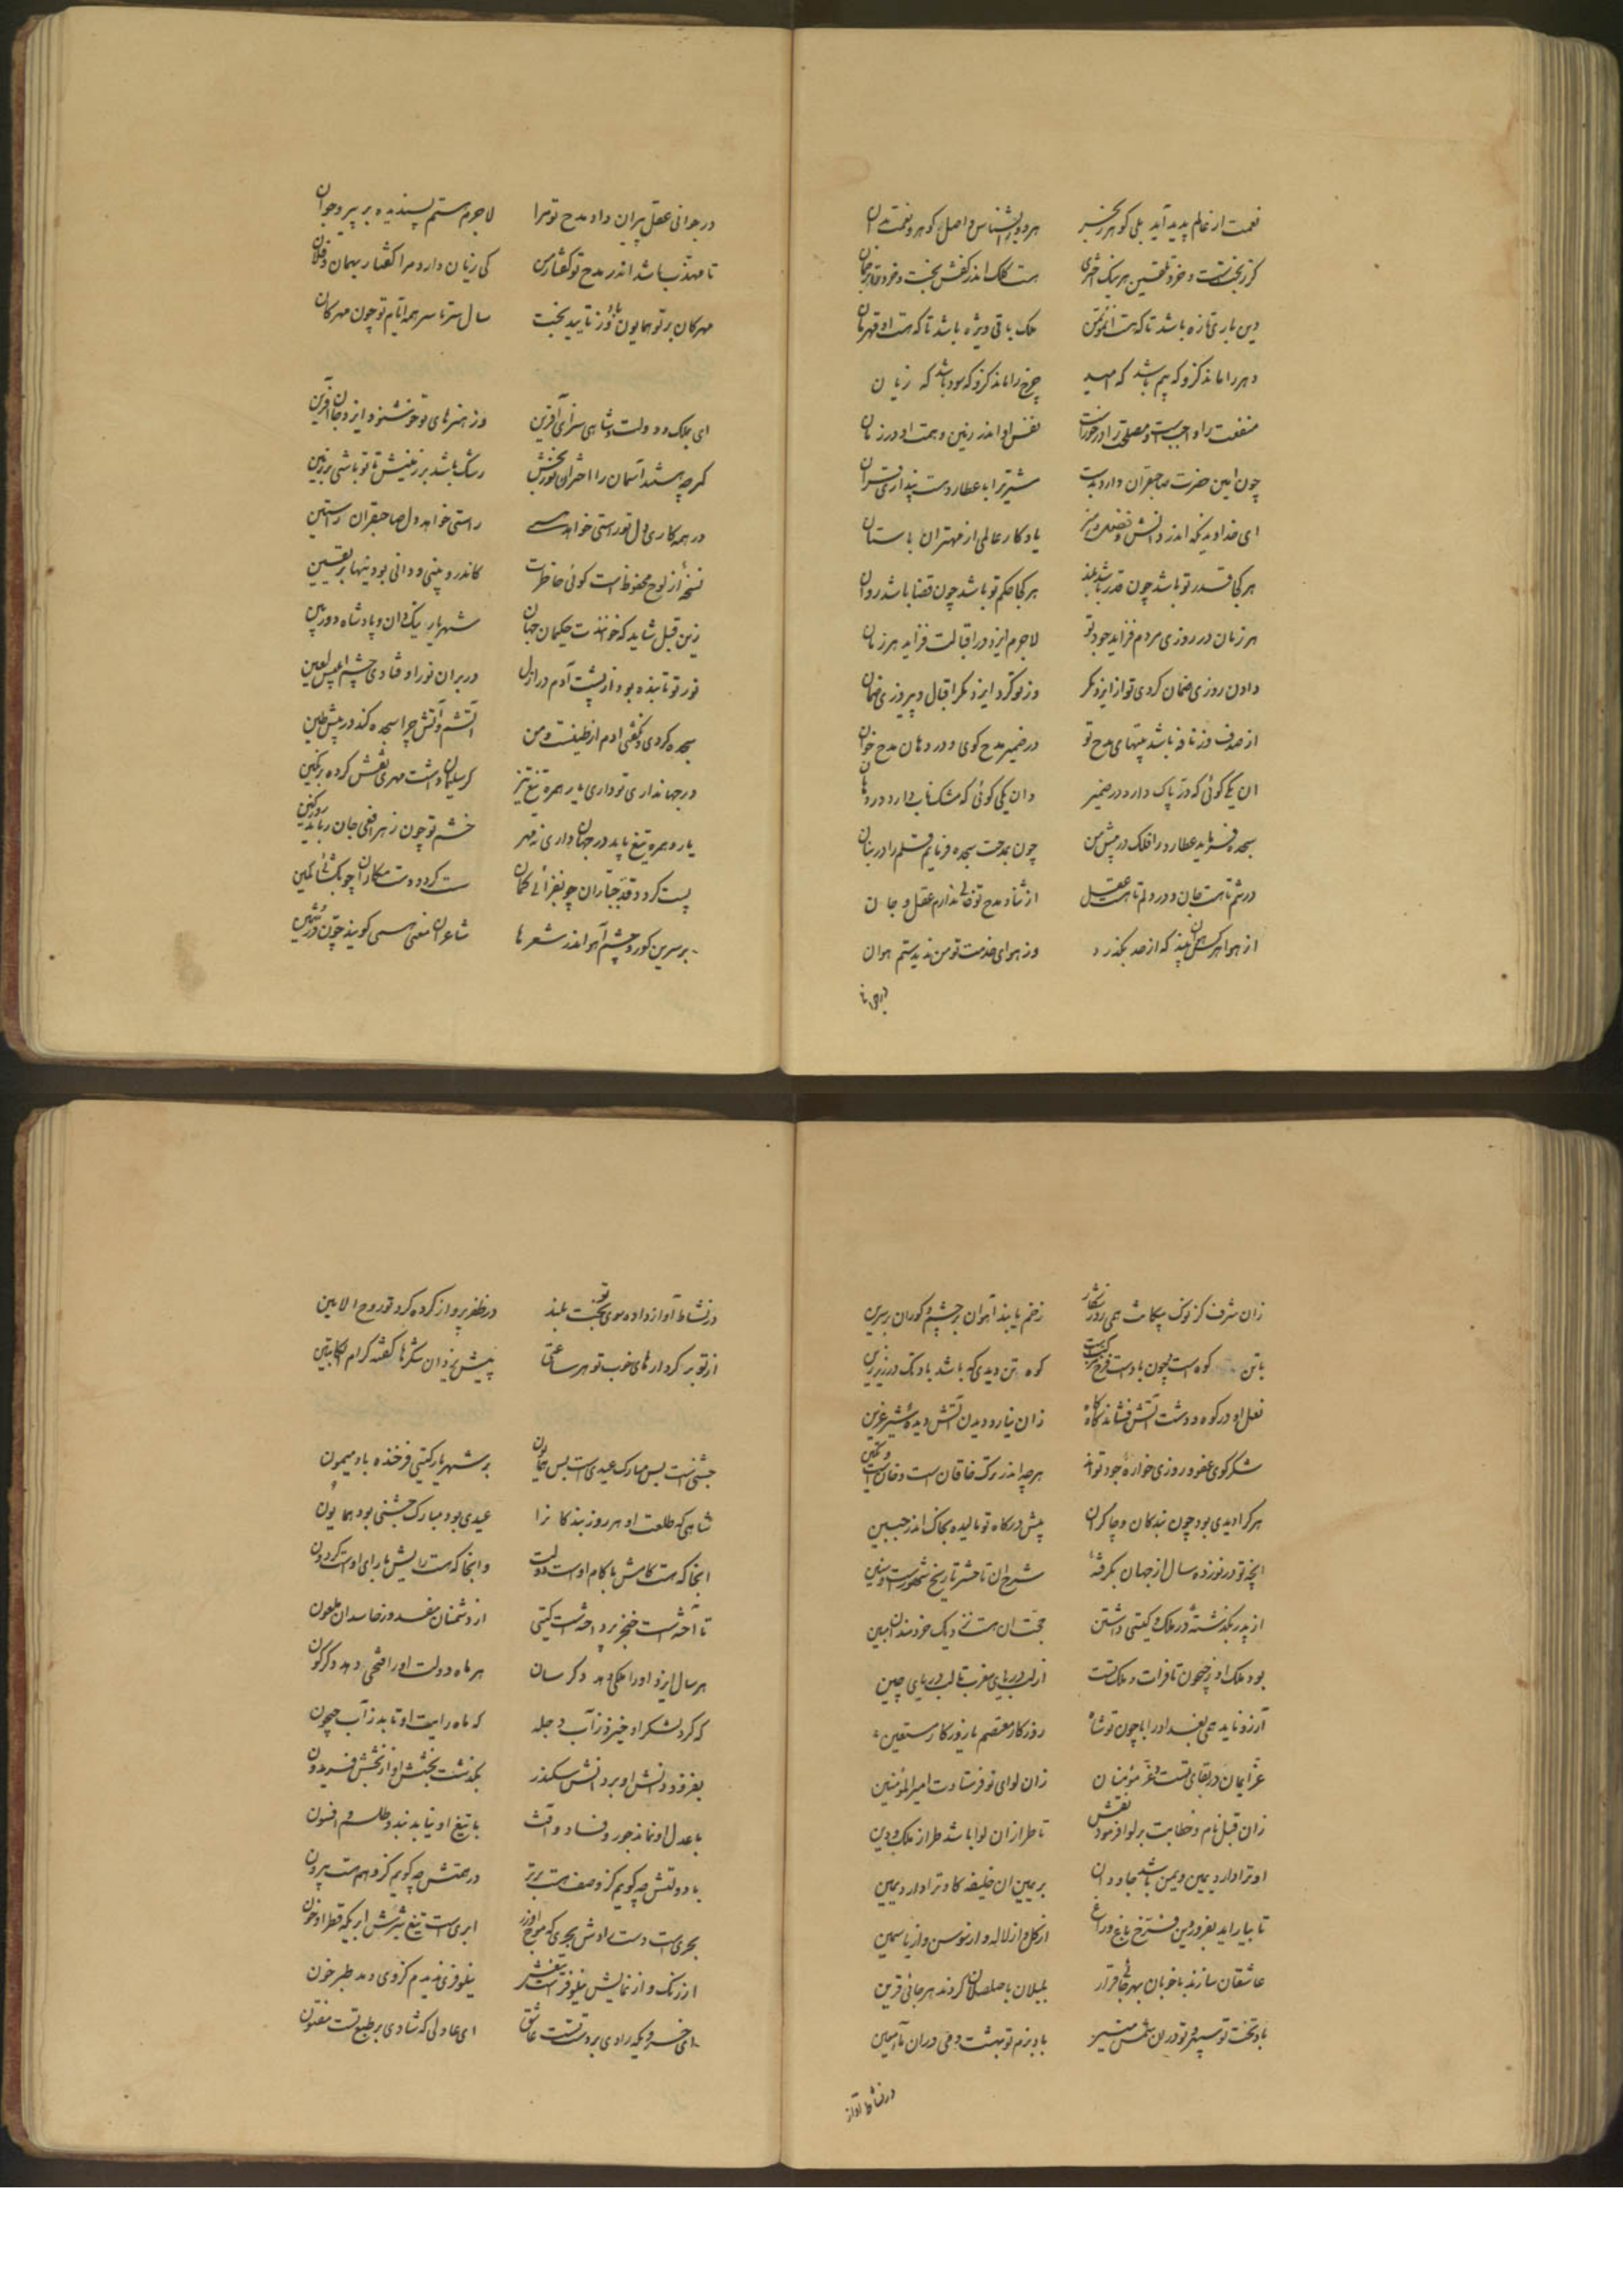 نعمت از عالم پدید آید بلی گوهر ز بحر هر دو را بشناس و اصل گوهر و نعمت بدان
دین باری تازه باشد تا که هست او مؤتمن ملک باقی ویژه باشد تا که هست او قهرمان
دهر را ماند کزو که بیم باشد که امید چرخ را ماند کزو که سود باشد که زیان
نفس او اندر زمین و همت او در زمان
چون امین حضرت صاحبقران دارد بدست مشتری را با عطارد هست پنداری قران
ای خداوندیکه اندر دانش و فضل و هنر یادکار عالمی از مهتران باستان
هر کجا قدر تو باشد چون قدر باشد بلند هر کجا حکم تو باشد چون قضا باشد روان
هر زمان در روزی مردم فزاید جود تو لاجرم ایزد در اقبالت فزاید هر زمان
دادن روزی ضمان کردی تو از ایزد مکر وز تو کرد ایزد مکر اقبال و پیروزی ضمان
از صدف وز نافه باشد بیتهای مدح تو در ضمیر مدح کوی و در دهان مدح خوان
ان یکی کوئی که در پاک دارد در ضمیر وان یکی کوئی که مشک ناب دارد در دهان
سجده فرماید عطارد را فلک در پیش من چون بمدحت سجده فرمایم قلم را در بنان
در تنم تا هست جان و در دلم تا هست عقل از ثنا و مدح تو خالی ندارم عقل و جان
از هوا هر کس هوان بیند که از حد بگذرد وز هوای خدمت تو من ندیدستم هوان
در جوانی
در جوانی عقل پیران داد مدح تو مرا لاجرم هستم پسندیده بر پیر و جوان
تا مهذب باشد اندر مدح تو گفتار من کی زیان دارد مرا گفتار بهمان و فلان
مهرکان بر تو همایون باد وز تایید بخت سال سرتاسر همه ایام تو چون مهرکان
ای بملک و دولت و شاهی سزای آفرین وز هنرهای تو خوشنود ایزد جان آفرین
کرچه هستند آسمان را اختران نوربخش رشک باشد بر زمینش تا تو باشی بر زمین
در همه کاری دل تو راستی خواهد همی راستی خواهد دل صاحبقران راستین
نسخه از لوح محفوظ است کوئی خاطرت کاندرو بینی و دانی بودنیها بر یقین
زین قبل شاید که خوانندت حکیمان جهان شهریار نیک دان و پادشاه دوربین
نور تو تابنده بود از پشت آدم در ازل در بران نور اوفتادی چشم ابلیس لعین
سجده کردی و نگفتی ادم از طینست و من آتشم و آتش چرا سجده کند در پیش طین
در جهانداری تو داری یاره همره تیغ تیز کر سلیمان داشت مهری نقش کرده بر نکین
خشم تو چون زهر افعی جان رباید روز کین
پست کردد قد جباران چو بفزائی کمان سست کردد دست مکاران چو بکشائی کمین
بر سرین کور و چشم آهو اندر شعرها شاعران معنی همی کویند چون در ثمین
زان شرف کز نوک پیکانت همی روز شکار زخم یابند آهوان بر چشم و کوران بر سرین
کوه تن دیدی که باشد باد تک در زیر زین
نعل او در کوه و دشت آتش فشاند کاه کاه زان نیارد دیدن آتش دیده شیر عرین
شکر کوی عفو و روزی خواره جود تواند هر چه اندر ترک خاقان است و خان است و تکین
هر کرا دیدی بود چون بندکان و چاکران پیش درکاه تو مالیده بخاک اندر جبین
انچه تو در نوزده سال از جهان بگرفته شرح ان تا حشر تاریخ شهور است و سنین
از پدر بگذشته در ملک و کیتی داشتن حجت ان هست نزدیک خردمندان مبین
بود ملک او ز جیحون تا فرات و ملک تست از لب دریای مغرب تا لب دریای چین
آرزو ناید همی بغداد را با چون تو شاه روزکار معتصم یا روزکار مستعین
عز ایمان در بقای تست و عز مؤمنان زان لوای نو فرستادت امیرالمؤمنین
زان قبل نام و خطابت بر لوا فرمود نقش تا طراز ان لوا باشد طراز ملک و دین
او ترا دارد یمین و یمن باشد جاودان بر یمین ان خلیفه کاو ترا دارد یمین
تا بیاراید بفروردین فرخ باغ و راغ از گل و از لاله و از سوسن و از یاسمین
عاشقان سازند با خوبان بهر جائی قرار بلبلان با صلصلان کردند هر جائی قرین
باد تخت تو سپهر و تو دران شمس منیر باد بزم تو بهشت و می دران ماء معین
در نشاط آواز
در نشاط آواز داده سوی تو بخت بلند در ظفر پرواز کرده کرد تو روح الامین
از تو بر کردارهای خوب تو هر ساعتی پیش یزدان شکرها گفته کرام الکاتبین
جشنی است بس مبارک عیدی است بس همایون بر شهریار کیتی فرخنده باد و میمون
شاهی که طلعت او هر روز بندکانرا عیدی بود مبارک جشنی بود همایون
انجا که هست کامش با کام اوست دولت وانجا که هست رایش با رای اوست گردون
تا آخته است خنجر پرداخته است کیتی از دشمنان مفسد وز حاسدان ملعون
هر سال ایزد او را ملکی دهد دکر سان هر ماه دولت او را فتحی دهد دکرکون
که کرد لشکر او خیزد ز آب دجله که ماه رایت او تابد ز آب جیحون
بفزود دانش او بر دانش سکندر بگذشت بخشش او از بخشش فریدون
با عدل او نماند جور و فساد و آفت با تیغ او نیاید بند و طلسم و افسون
با دولتش چه کویم کز وصف هست برتر در همتش چه کویم کز وهم هست بیرون
بحری است دست رادش بحری که موج او زر ابری است تیغ تیزش ابریکه قطر او خون
نیلوفری ندیدم کز وی دمد طبرخون
ای خسرویکه رادی بر دست تست عاشق ای عادلی که شادی بر طبع تست مفتون